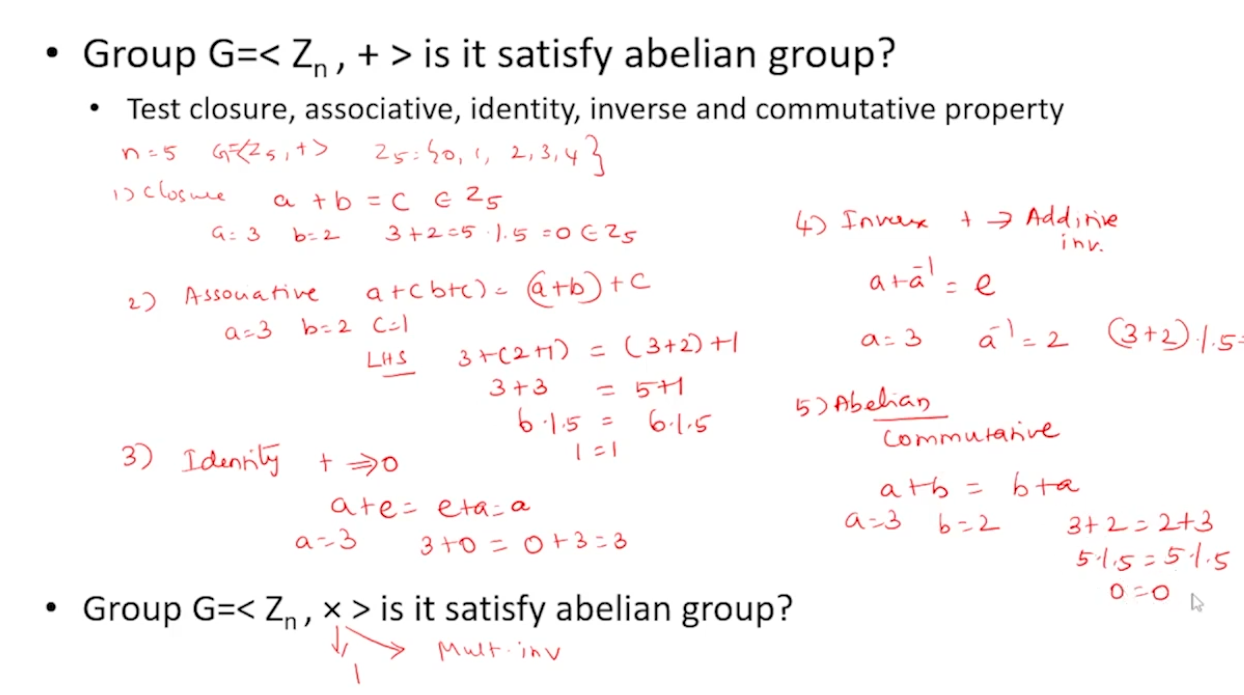 • Group G=< Zn , + > is it satisfy abelian group?
• Test closure, associative, identity, inverse and commutative property
n=5 G=<Z5,+> Z5:{0, 1, 2, 3, 4}
1) Closure a + b = C ∈ Z5
a=3 b=2 3+2=5 % 5 =0 ∈ Z5
2) Associative a+(b+c) = (a+b)+C
a=3 b=2 C=1
LHS 3+(2+1) = (3+2)+1
3+3 = 5+1
6 % 5 = 6 % 5
1 = 1
3) Identity + ⇒ 0
a+e = e+a = a
a=3 3+0 = 0+3 = 3
4) Inverse + → Additive
inv.
a+a⁻¹ = e
a=3 a⁻¹=2 (3+2) % 5=
5) Abelian
Commutative
a+b = b+a
a=3 b=2 3+2=2+3
5 % 5 = 5 % 5
0=0
• Group G=< Zn , × > is it satisfy abelian group?
Mult. inv
1